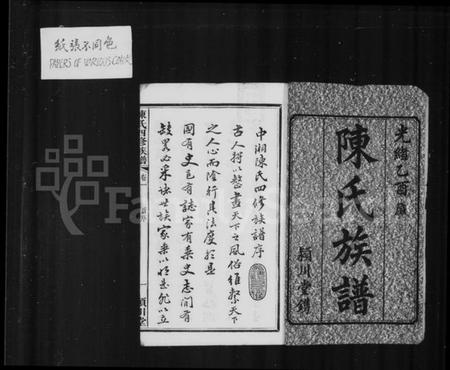 紙張不同色
PAPERS OF VARIOUS COLOR
光緒乙酉歲
陳氏族譜
潁川堂鐫
中湘陳氏四修族譜序
古人將以整畫天下之風俗維繫天下
之人心而隆行其法度於是
國有史邑有誌家有乘史志間有
缺畧必采諸世族家乘以
陳氏四修族譜
卷
一
潁川堂